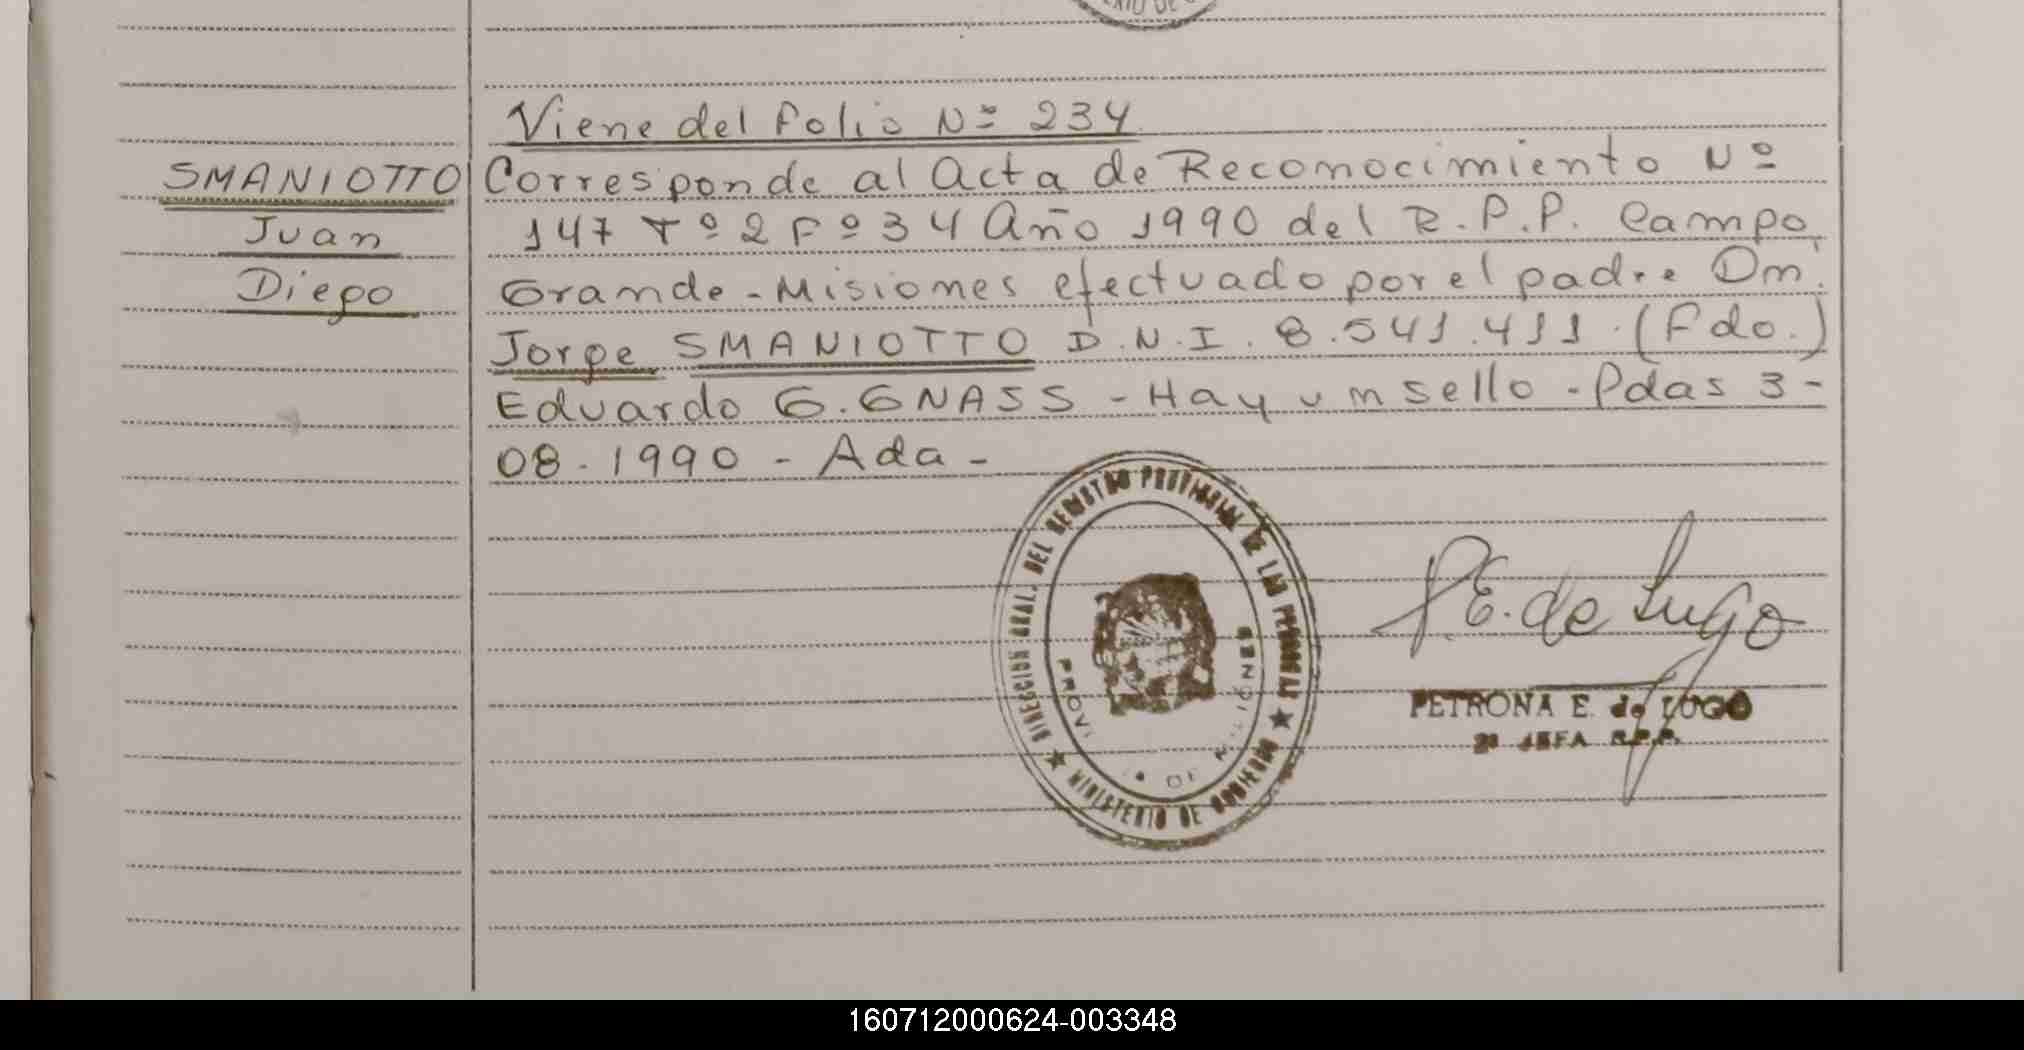 Viene del folio Nº 234
SMANIOTTO
Juan
Diego
Corresponde al Acta de Reconocimiento Nº
147 Tº 2 Fº 34 Año 1990 del R.P.P. Campo
Grande - Misiones efectuado por el padre Dn.
Jorge SMANIOTTO D.N.I. 8.541.411. (Fdo.)
Eduardo G. GNASS - Hay un sello - Pdas 3 -
08 - 1990 - Ada -
DIRECCION GRAL. DEL REGISTRO PROVINCIAL DE LAS PERSONAS
MINISTERIO DE GOBIERNO
P.E. de Lugo
PETRONA E. de LUGO
2ª JEFA R.P.P.
160712000624-003348